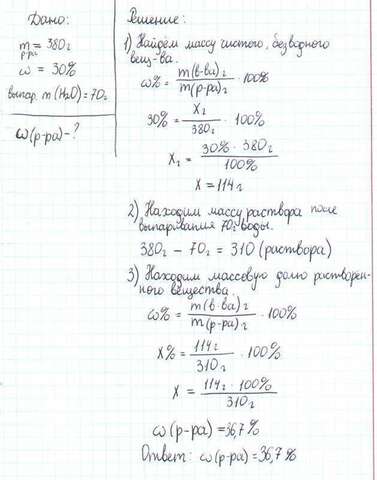 Дано:
m р-ра = 380г
ω = 30%
выпар. m(H₂O) = 70г
ω(р-ра) - ?
Решение:
1) Найдём массу чистого, безводного
вещ-ва.
ω% = m(в-ва)г / m(р-ра)г · 100%
30% = X г / 380г · 100%
X г = 30% · 380г / 100%
X = 114г
2) Находим массу раствора после
выпаривания 70г воды.
380г - 70г = 310 (раствора)
3) Находим массовую долю растворён-
ного вещества.
ω% = m(в-ва)г / m(р-ра)г · 100%
X% = 114г / 310г · 100%
X = 114г · 100% / 310г
ω(р-ра) = 36,7%
Ответ: ω(р-ра) = 36,7%